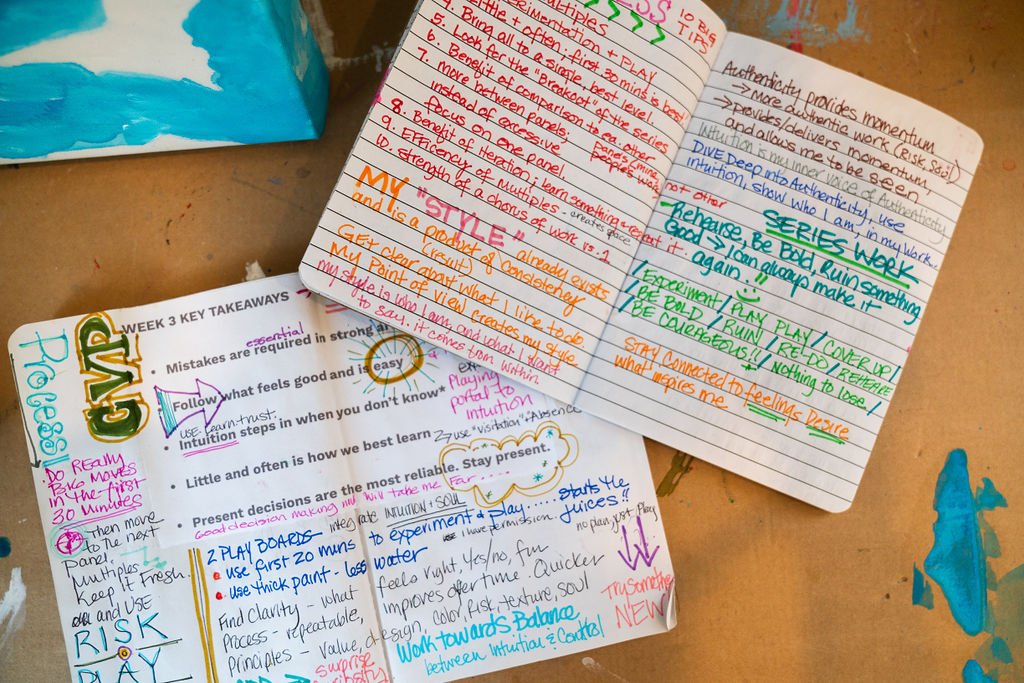 10 BIG
TIPS
multiples
experimentation + PLAY
4. Little + often: first 30 mins is best
5. Bring all to a single, best level.
6. Look for the "Breakout" of the series
7. more between panels:
Benefit of comparison to ea. other
instead of excessive
focus on one panel.
8. Benefit of iteration; learn something & repeat it.
9. EFFICENCY of multiples - creates space
10. strength of a chorus of work vs. 1
MY "STYLE"
and is a product of already exists
(result) consistency
GET clear about what I like to do
My Point of View creates my style
my style is who I am, and what I want
to say. it comes from within.
Authenticity provides momentum
→ More authentic work (Risk, Soul)
→ provides/delivers momentum,
and allows me to be seen
Intuition is my inner voice of Authenticity
DIVE Deep into Authenticity, use
intuition, show who I am, in my work..
not other
SERIES WORK
Rehearse, Be Bold, Ruin something
Good → I can always make it
again!!
/EXPERIMENT/PLAY PLAY/COVER UP/
/BE BOLD/RUIN/RE-DO/REHEARSE
/BE COURAGEOUS!!/+ Nothing to Lose!/
STAY Connected to feelings Desire
what inspires me
Process!
GVP
WEEK 3 KEY TAKEAWAYS
essential
• Mistakes are required in strong ar
• Follow what feels good and is easy
USE learn-trust.
• Intuition steps in when you don't know*
Playing
portal to
intuition
• Little and often is how we best learn
use "visitation" + Absence
• Present decisions are the most reliable. Stay present.
Good decision making will take me far.....
DO Really
BIG MOVES
in the first
30 Minutes
Then move
to the next
Panel.
Multiples
Keep it Fresh.
and USE
RISK
PLAY
2 PLAY BOARDS - integrate INTUITION + SOUL
• use first 20 mins to experiment & play.... starts the
juices!!
use I have permission. no plan, just Play
• use thick paint - less water
Find Clarity - what feels right, Yes/no, fun
Process - repeatable, improves over time. Quicker
Principles - value, design, color, Risk, texture, soul
surprise
Work towards Balance
between Intuition & Control
Try Something
NEW